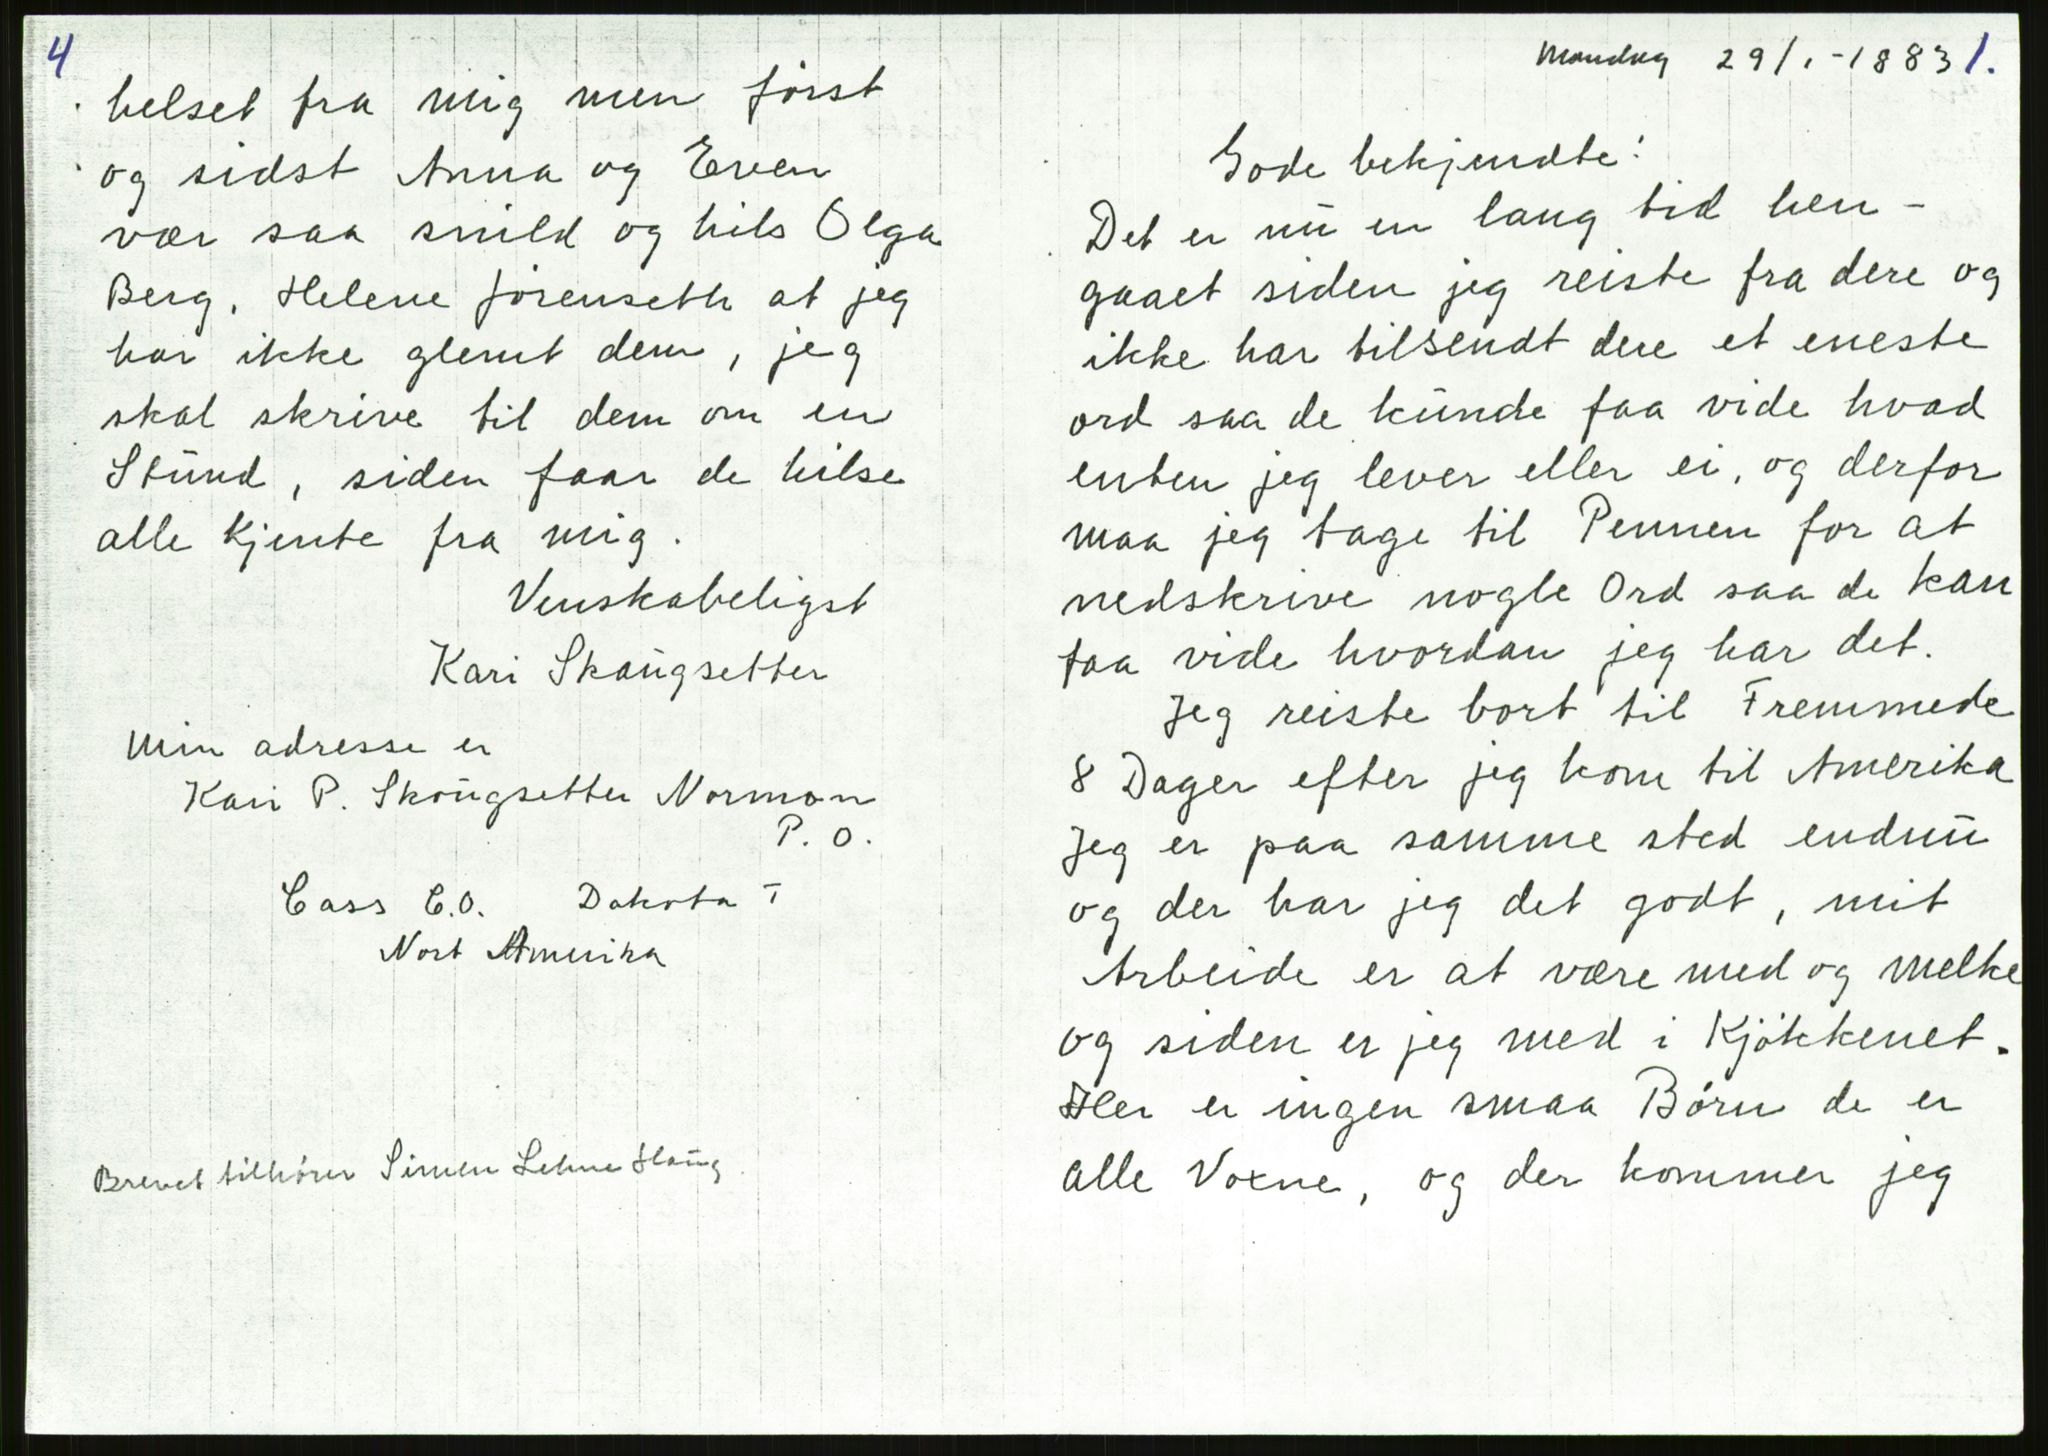 4
helset fra mig men först
og sidst Anna og Even
vær saa snild og hils Olga
Berg, Helene Jörenseth at jeg
har ikke glemt dem, jeg
skal skrive til dem om en
Stünd, siden faar de hilse
alle Kjente fra mig.
Venskabeligst
Kari Skaügsetter
Min adresse er
Kari P. Skoügsetter Norman
P. O.
Cass C.O. Dakota T
Nort Amerika
Brevet tilhörer Simen Lehne Haüg
Mandag 29/1-1883 1.
Gode bekjendte!
Det er nü en lang tid hen-
gaaet siden jeg reiste fra dere og
ikke har tilsendt dere et eneste
ord saa de künde faa vide hvad
enten jeg lever eller ei, og derfor
maa jeg tage til Pennen for at
nedskrive nogle Ord saa de kan
faa vide hvordan jeg har det.
Jeg reiste bort til Fremmede
8 Dager efter jeg kom til Amerika
Jeg er paa samme sted endnü
og der har jeg det godt, mit
Arbeide er at være med og melke
og siden er jeg med i Kjökkenet.
Her er ingen smaa Börn de er
alle Voxne, og der kommer jeg